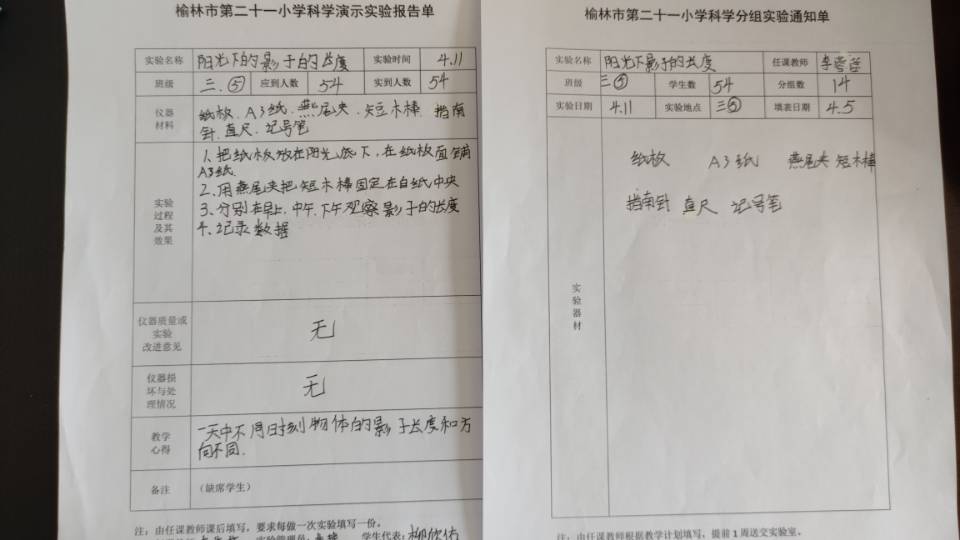 榆林市第二十一小学科学演示实验报告单
实验名称 阳光下的影子的长度 实验时间 4.11
班级 三.⑤ 应到人数 54 实到人数 54
仪器材料 纸板.A3纸.燕尾夹.短木棒.指南
针.直尺.记号笔
实验过程及其效果
1、把纸板放在阳光底下,在纸板面铺
A3纸.
2、用燕尾夹把短木棒固定在白纸中央
3、分别在早上.中午.下午观察影子的长度
4、记录数据
仪器质量或实验改进意见 无
仪器损坏与处理情况 无
教学心得 一天中不同时刻物体的影子长度和方
向不同.
备注 (缺席学生)
注:由任课教师课后填写,要求每做一次实验填写一份。
实验管理员: 学生代表:柳欣佑
榆林市第二十一小学科学分组实验通知单
实验名称 阳光下影子的长度 任课教师
班级 三⑤ 学生数 54 分组数 14
实验日期 4.11 实验地点 三⑤ 填表日期 4.5
实验器材
纸板 A3纸 燕尾夹 短木棒
指南针 直尺 记号笔
注:由任课教师根据教学计划填写,提前1周送交实验室。